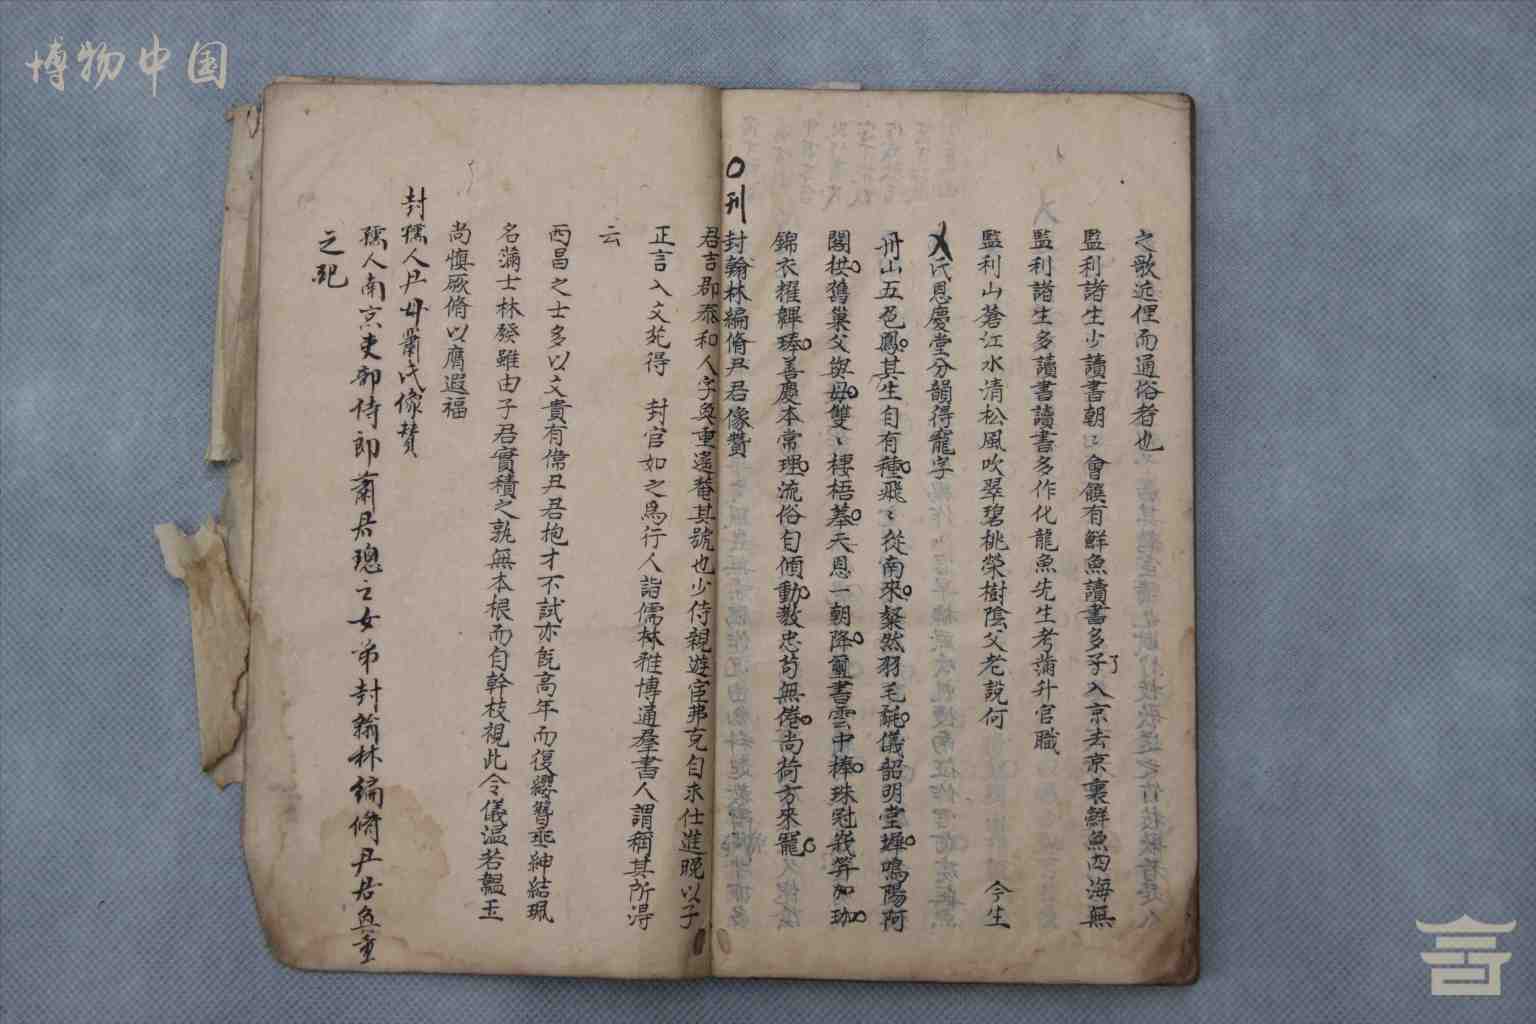 博物中国
之歌近俚而通俗者也
監利諸生少讀書朝〻會饌有鮮魚讀書多了入京去京裏鮮魚四海無
監利諸生多讀書讀書多作化龍魚先生考滿升官職
監利山蒼江水清松風吹翠碧桃榮樹陰父老說何 今生
氏恩慶堂分韻得寵字
丹山五色鳳其生自有種飛〻從南來粲然羽毛毨儀韶明堂墀鳴陽阿
閣栱鵷巢父與母雙〻棲梧菶天恩一朝降璽書雲中捧珠冠峩笄加珈
錦衣耀鞸琫善慶本常理流俗自傾動教忠苟無倦尚荷方來寵
○刊
封翰林編脩尹君像贊
君言郡泰和人字奐重遙菴其號也少侍親遊宦弗克自求仕進晚以子
正言入文苑得 封官如之爲行人詣儒林雅博通羣書人謂稱其所得
云
西昌之士多以文貴有儒尹君抱才不試亦旣高年而復纓簪垂紳結珮
名蒲士林發雖由子君實積之孰無本根而自幹枝視此令儀温若韞玉
尚愼厥脩以膺遐福
封孺人尹母蕭氏像贊
孺人南京吏部侍郎蕭君璁之女弟封翰林編脩尹君奐重
之配